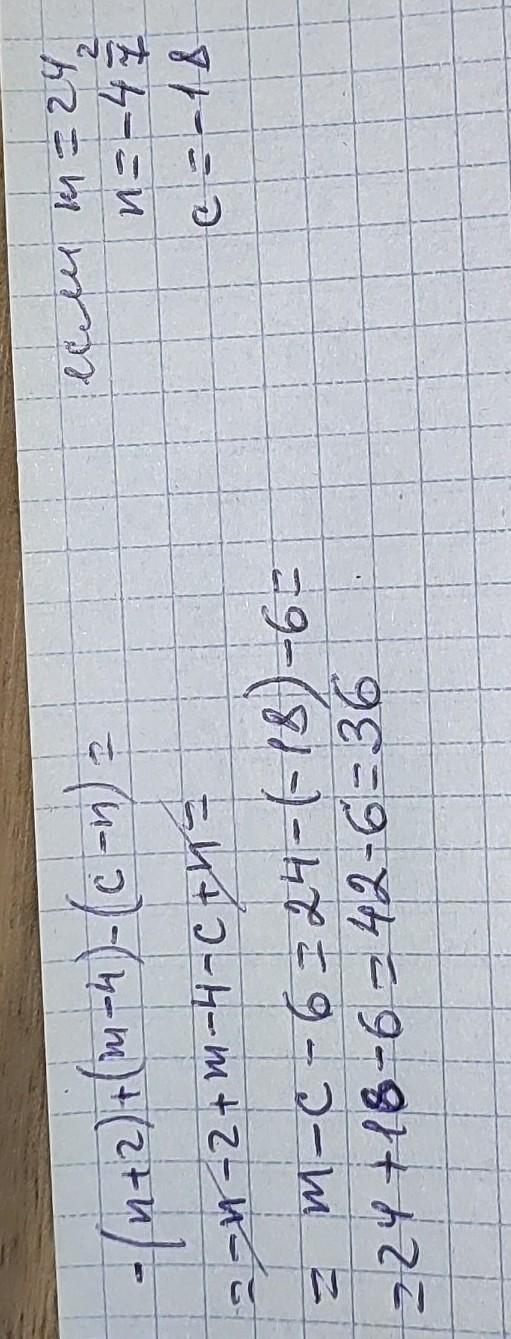 если m = 24
n = -4 2/7
c = -18
-(n+2)+(m-4)-(c-n)=
=-n-2+m-4-c+n=
= m-c-6=24-(-18)-6=
=24+18-6=42-6=36